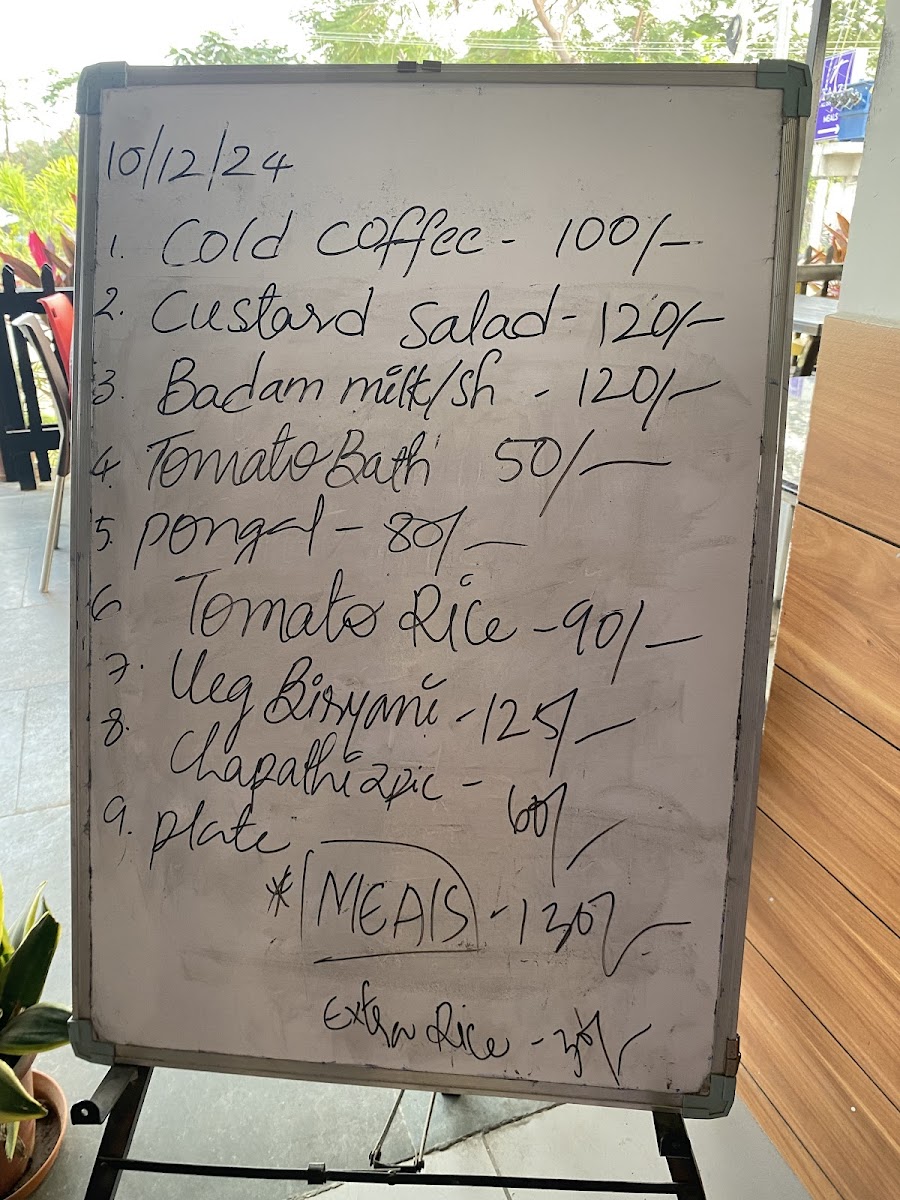 10/12/24
1. Cold coffee - 100/-
2. Custard Salad - 120/-
3. Badam milk/sh - 120/-
4 Tomato Bath 50/-
5. pongal - 80/-
6 Tomato Rice - 90/-
7. Veg Biryani - 125/-
8. Chapathi 2pic - 60/-
9. plate
* MEALS - 130/-
Extra Rice - 30/-
MEALS